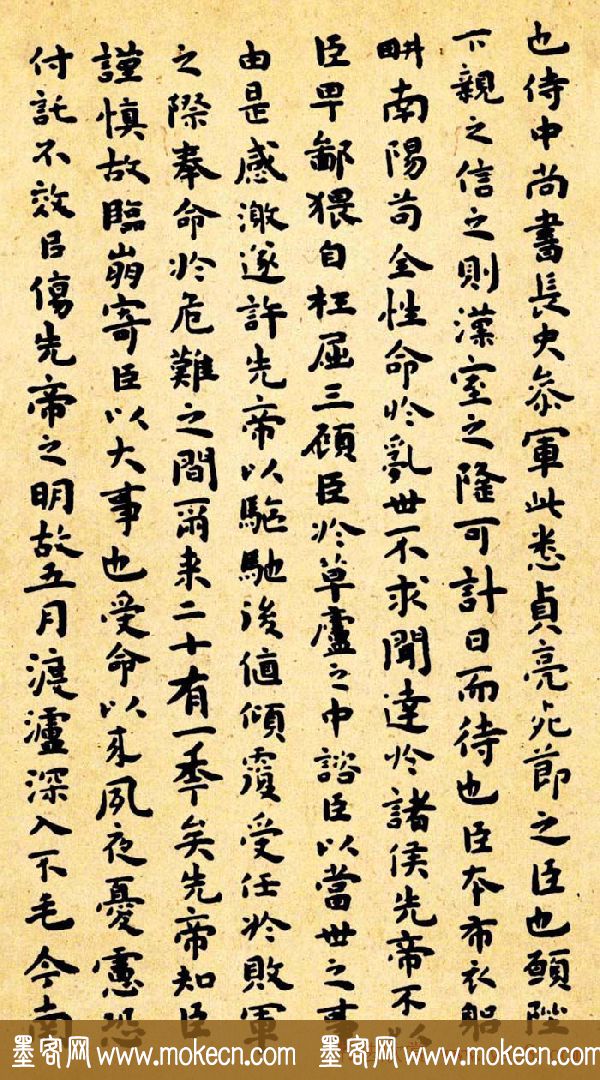 也侍中尚書長史叅軍此悉貞亮死節之臣也願陛
下親之信之則漢室之隆可計日而待也臣本布衣躬
畊南陽苟全性命於亂世不求聞達於諸侯先帝不以
臣卑鄙猥自枉屈三顧臣於草廬之中諮臣以當世之事
由是感激遂許先帝以驅馳後值傾覆受任於敗軍
之際奉命於危難之間爾来二十有一季矣先帝知臣
謹慎故臨崩寄臣以大事也受命以來夙夜憂慮恐
付託不效以傷先帝之明故五月渡瀘深入不毛今南
墨客网 www.mokecn.com 墨客网 www.mokecn.com